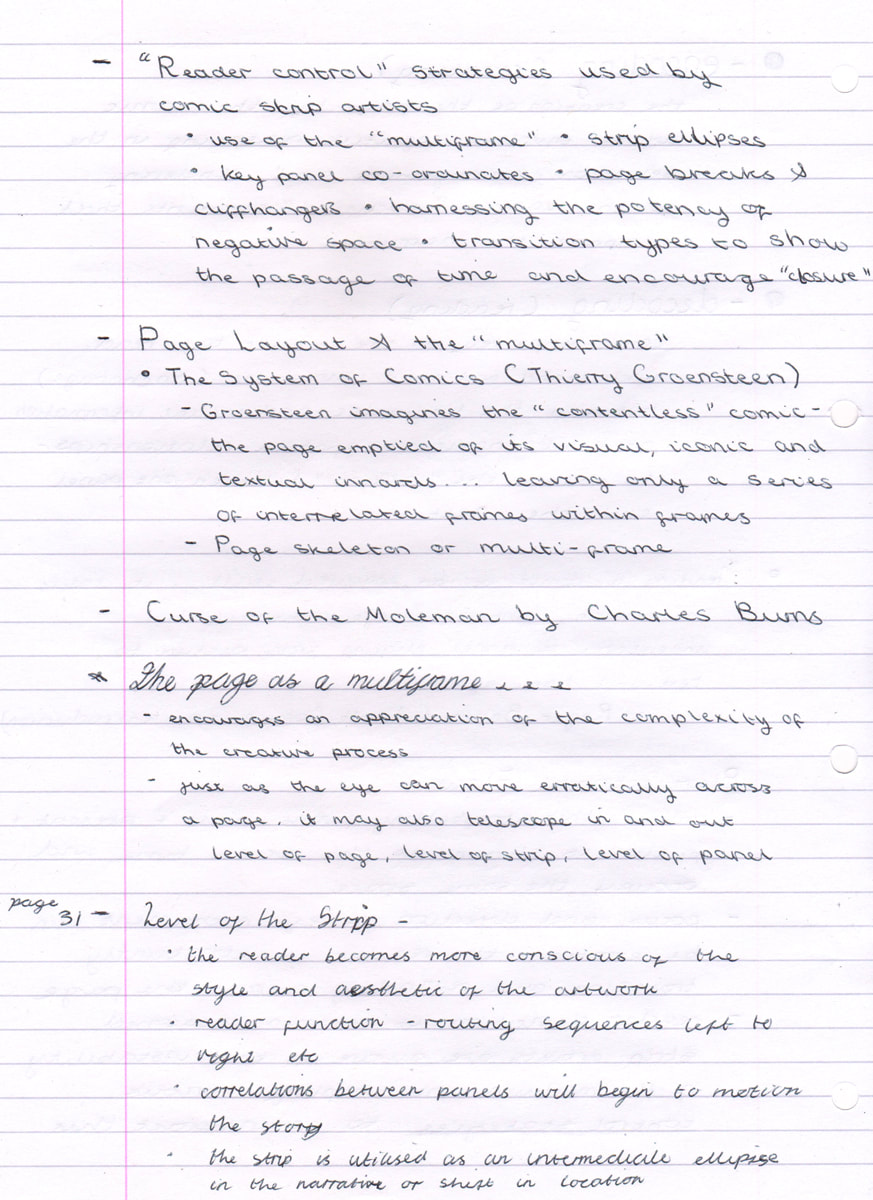 - "Reader control" strategies used by
comic strip artists
• use of the "multiframe" • strip ellipses
• key panel co-ordinates • page breaks &
cliffhangers • harnessing the potency of
negative space • transition types to show
the passage of time and encourage "closure"
- Page Layout & the "multiframe"
• The System of Comics (Thierry Groensteen)
- Groensteen imagines the "contentless" comic -
the page emptied of its visual, iconic and
textual innards... leaving only a series
of interrelated frames within frames
- Page skeleton or multi-frame
- Curse of the Moleman by Charles Burns
* The page as a multiframe . . .
- encourages an appreciation of the complexity of
the creative process
- just as the eye can move erratically across
a page, it may also telescope in and out
level of page, level of strip, level of panel
page
31 - Level of the Strip -
• the reader becomes more conscious of the
style and aesthetic of the artwork
• reader function - routing sequences left to
right etc
• correlations between panels will begin to motion
the story
• the strip is utilised as an intermediate ellipse
in the narrative or shift in location